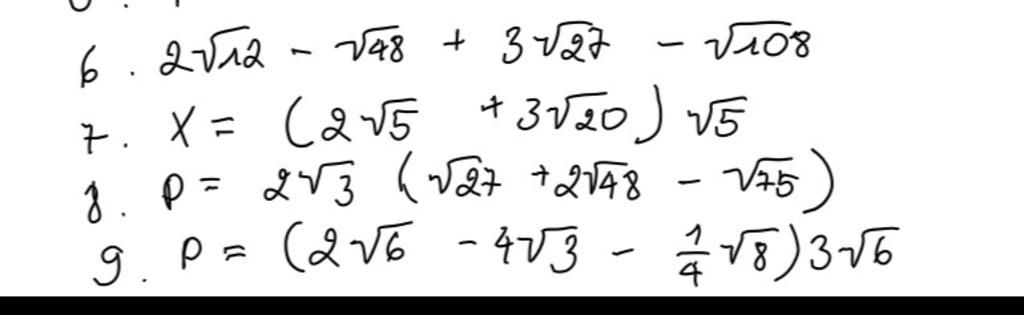 6. 2√12 - √48 + 3√27 - √108
7. X = (2√5 + 3√20) √5
8. P = 2√3 (√27 + 2√48 - √75)
9. P = (2√6 - 4√3 - 1/4 √8) 3√6